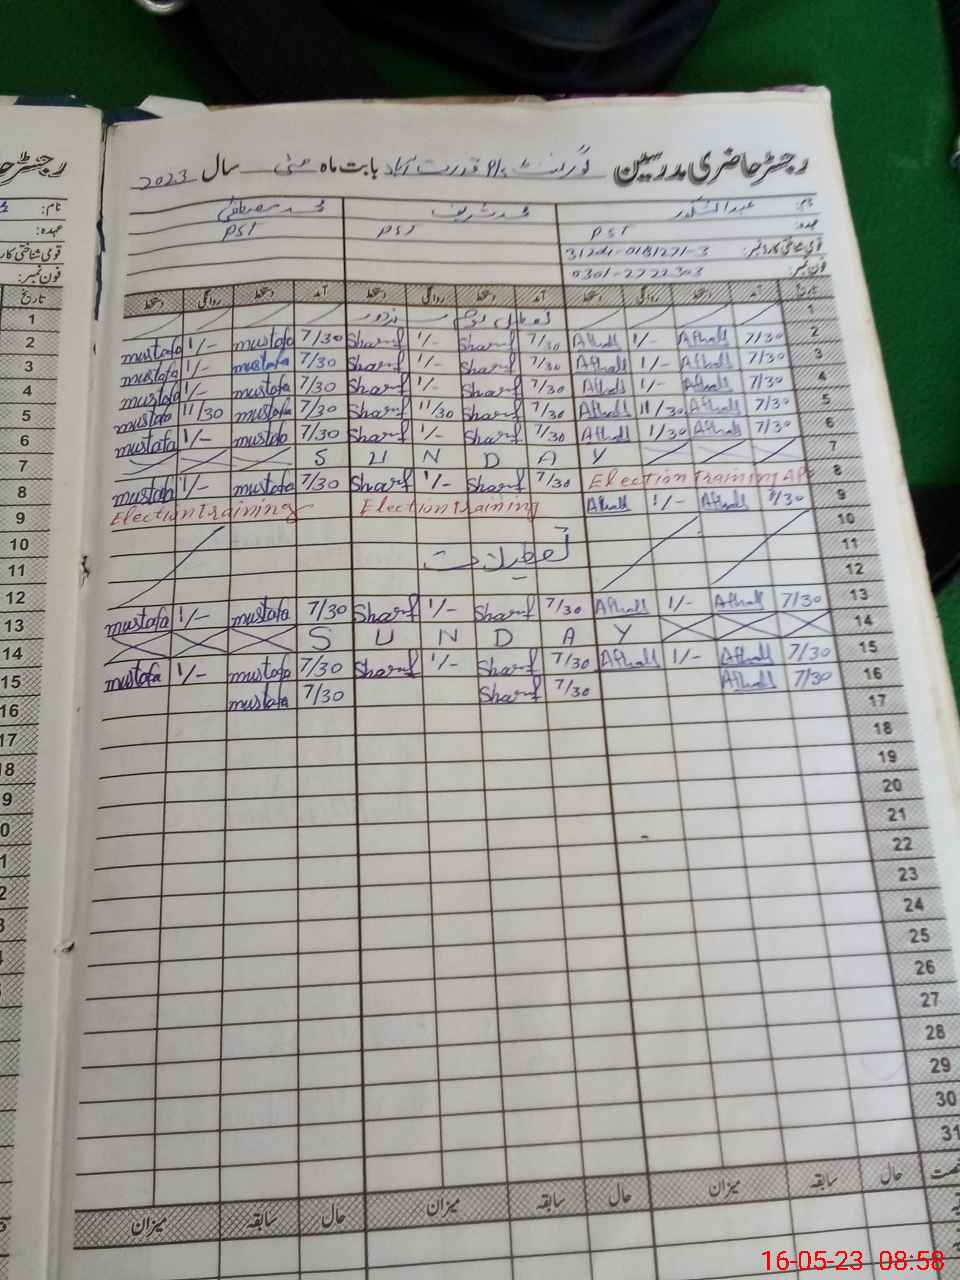 رجسٹر حاضری مدرسین گورنمنٹ پرائمری قدرت آباد بابت ماہ مئی سال 2023
نام: عبدالشکور محمد شریف محمد مصطفیٰ
عہدہ: PST PST PST
قومی شناختی کارڈ نمبر:
فون نمبر: 0301-2722303
تاریخ آمد دستخط روانگی دستخط آمد دستخط روانگی دستخط آمد دستخط روانگی دستخط
1 تعطیل یوم مزدور
2 7/30 Afhall 1/- Afhall 7/30 Sharif 1/- Sharif 7/30 mustafa 1/- mustafa
3 7/30 Afhall 1/- Afhall 7/30 Sharif 1/- Sharif 7/30 mustafa 1/- mustafa
4 7/30 Afhall 1/- Afhall 7/30 Sharif 1/- Sharif 7/30 mustafa 1/- mustafa
5 7/30 Afhall 11/30 Afhall 7/30 Sharif 11/30 Sharif 7/30 mustafa 11/30 mustafa
6 7/30 Afhall 1/30 Afhall 7/30 Sharif 1/- Sharif 7/30 mustafa 1/- mustafa
7 SUNDAY
8 Election Training 7/30 Sharif 1/- Sharif 7/30 mustafa 1/- mustafa
9 7/30 Afhall 1/- Afhall Election Training Election Training
10
11 تعطیلات
12
13 7/30 Afhall 1/- Afhall 7/30 Sharif 1/- Sharif 7/30 mustafa 1/- mustafa
14 SUNDAY
15 7/30 Afhall 1/- Afhall 7/30 Sharif 1/- Sharif 7/30 mustafa 1/- mustafa
16 7/30 Afhall 7/30 Sharif 7/30 mustafa
17
18
19
20
21
22
23
24
25
26
27
28
29
30
31
حال سابقہ میزان حال سابقہ میزان حال سابقہ میزان
16-05-23 08:58